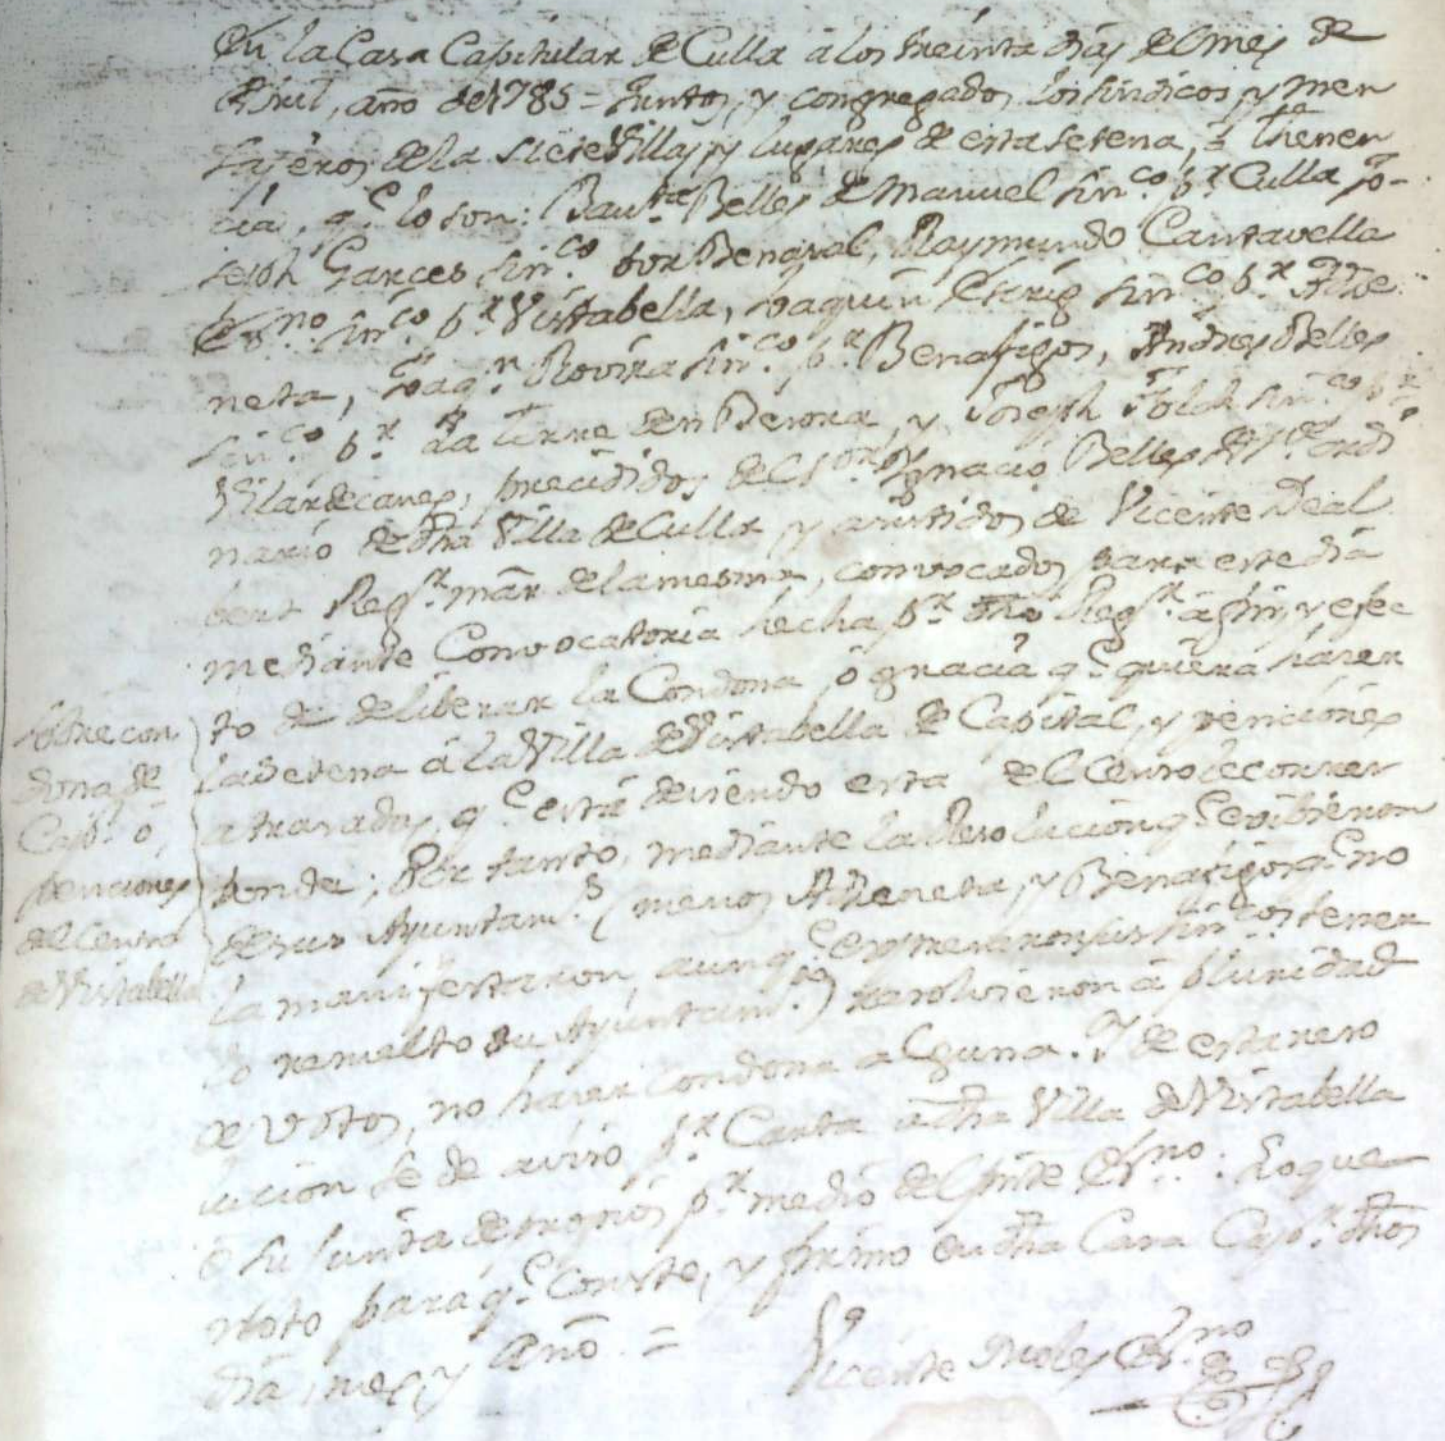 En la Casa Capitular de Culla á los treinta días del mes de
Abril, año de 1785 = Juntos, y congregados los sindicos, y men
sajeros de la siete Villas, y lugares de esta setena, ê thenen
cia, q.e lo son: Bau.ta Belles de Manuel sin.co p.r Culla Jo-
seph Garces sin.co por Benasal, Raymundo Cantavella
Es.no sin.co p.r Vistabella, Joaquin Escrig sin.co p.r Adze
neta, Joaq.n Rovira sin.co p.r Benafigos, Andres Belles
sin.co p.r La Torre den Besora, y Joseph Folch sin.co p.r
Vilardecanes, precididos del S.or Ignacio Belles Al.de ordi
nario de dha Villa de Culla y asistidos de Vicente Deal
bert Reg.r mâr de la mesma, convocados para este dia
mediante Convocatoria hecha p.r dho Reg.r á fin, y efec
to de deliberar la Condona, ó gracia q.e quiera haser
la Setena á la Villa de Vistabella de Capital, y penciones
atrasadas, q.e está deviendo esta del Censo le corres
ponde; Por tanto, mediante la Resolucion q.e exibieron
de sus Ayuntam.s (menos Adzeneta, y Benafigos q.e no
la manifestaron, aunq.e expresaron sus sin.cos tener
lo resuelto su Ayuntam.to) resolvieron á pluridad
de votos, no haser Condona alguna. Y de esta reso
lucion se de aviso p.r Carta a dha Villa de Vistabella
ó su Junta de propios p.r medio del pnte Es.no: Lo que
noto para q.e Conste, y firmo en dha Casa Cap.r dhos
dia, mes, y año =
Vicente Moles Es.no
Sobre con
dona de
Cap.l ó
penciones
del Censo
de Vistabella